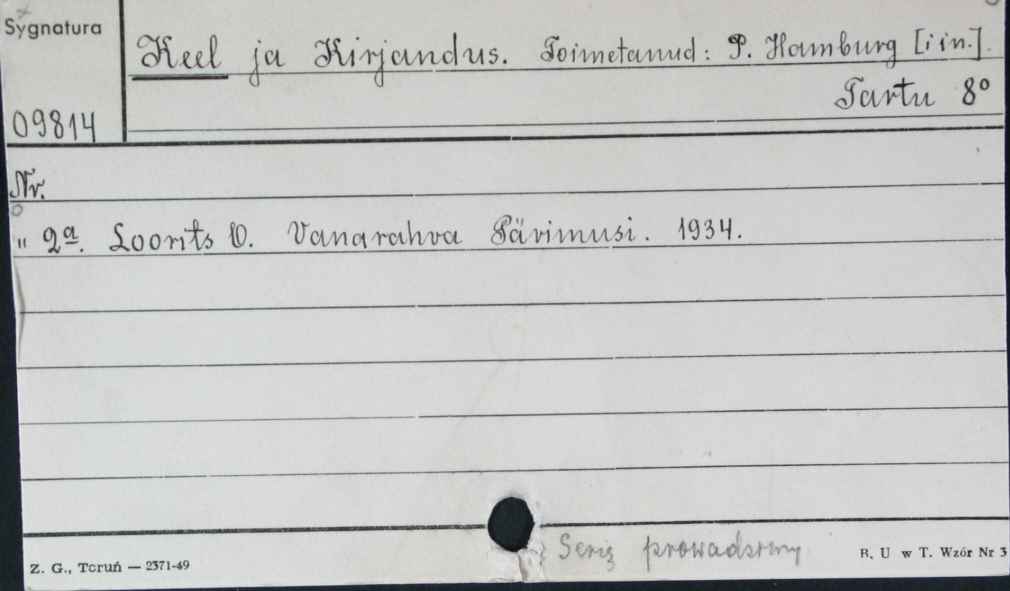 Sygnatura
Keel ja Kirjandus. Toimetanud: P. Hamburg [i in.].
Tartu 8º
09814
Nr.
" 2ª. Loorits O. Vanarahva Pärimusi. 1934.
Serię prowadzimy
Z. G., Toruń — 2371-49
B. U w T. Wzór Nr 3